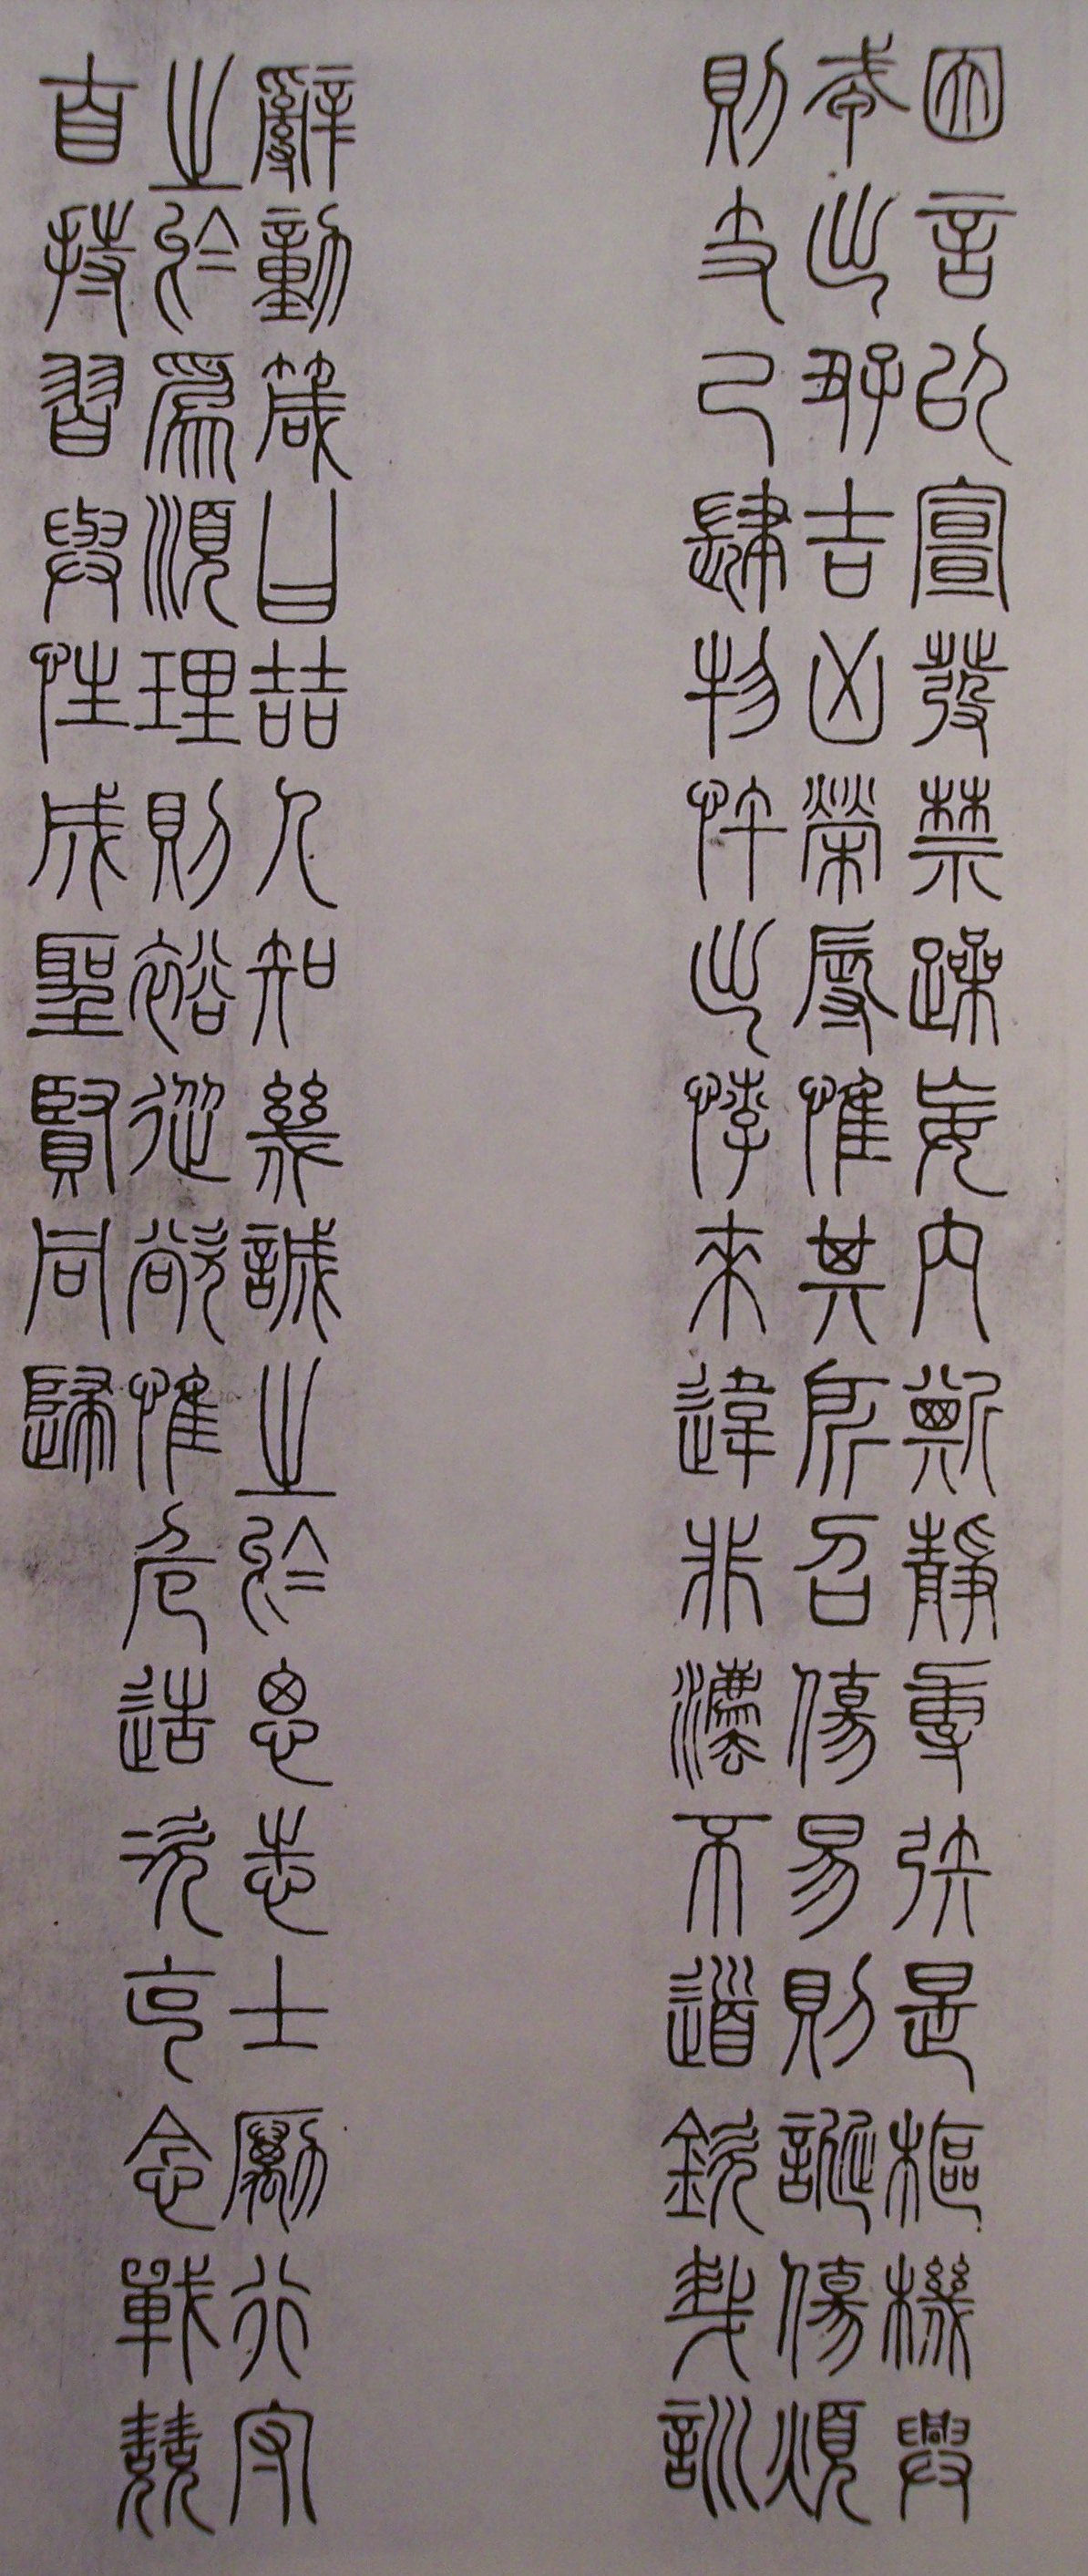 因言以宣發禁躁妄內斯靜專矧是樞機興
戎出好吉凶榮辱惟其所召傷易則誕傷煩
則支己肆物忤出悖來違非灋不道欽哉訓
辭動箴曰哲人知幾誠之於思志士勵行守
之於爲順理則裕從欲惟危造次克念戰兢
自持習與性成聖賢同歸